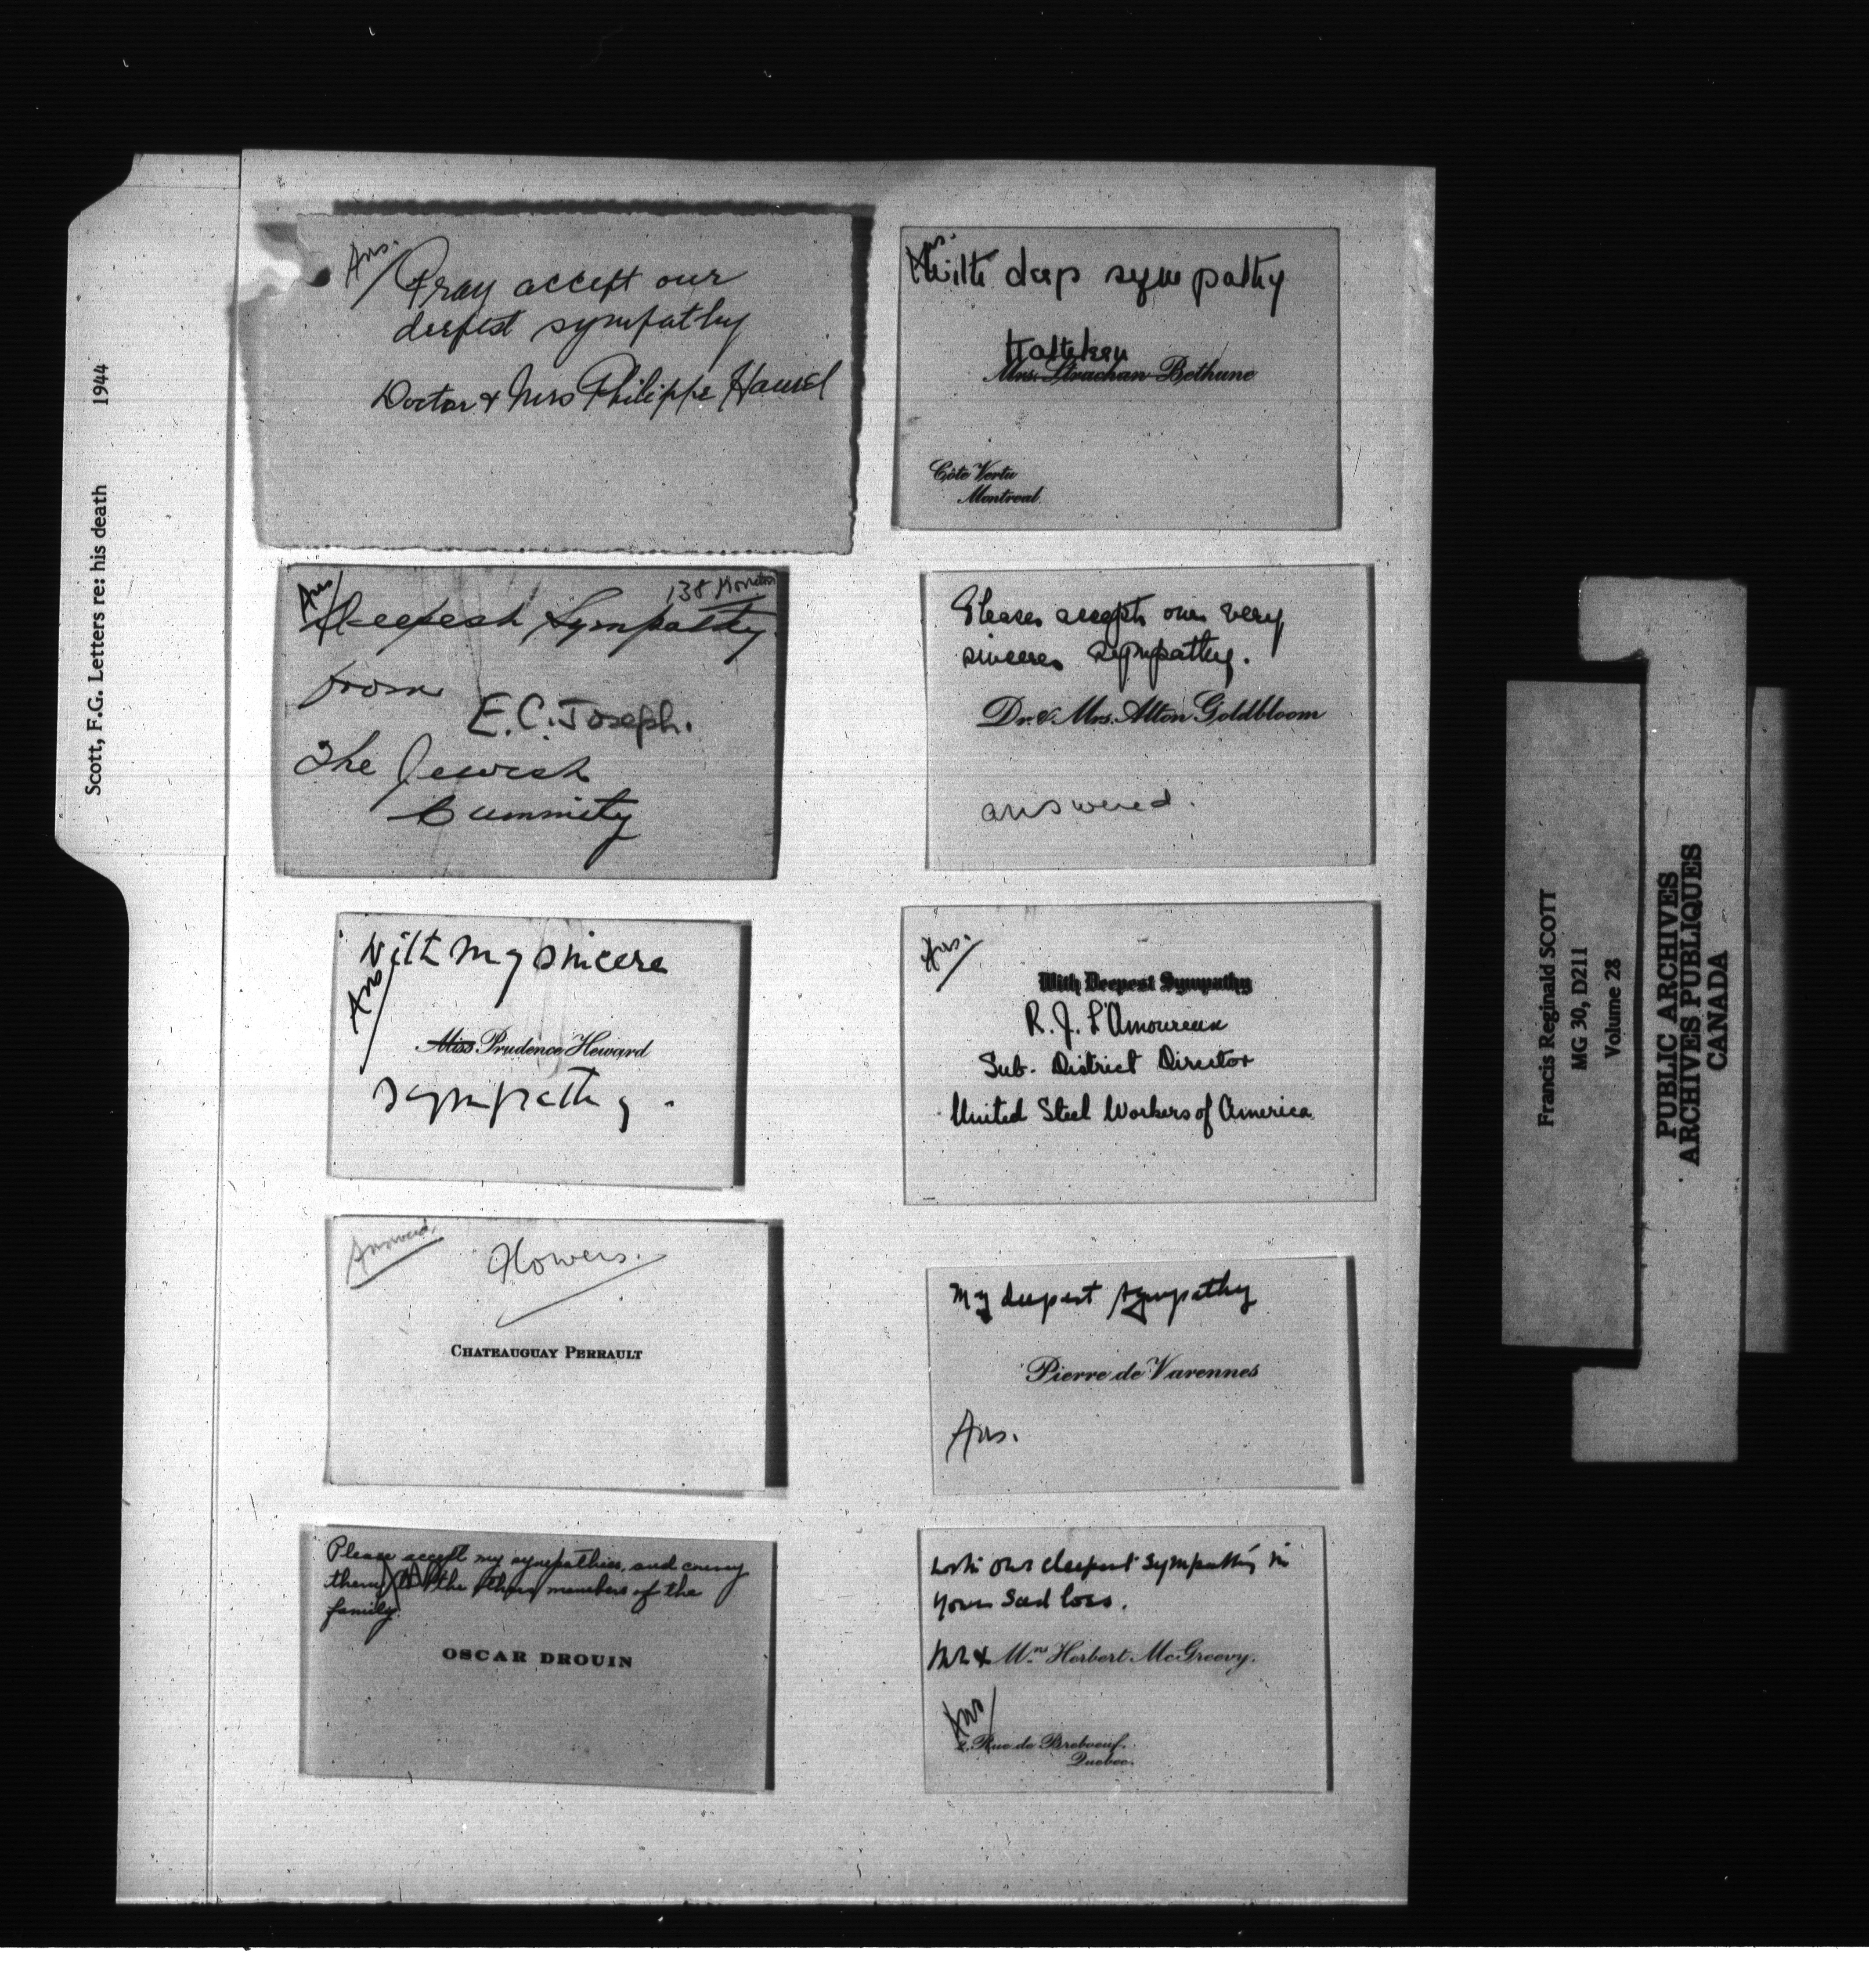 Scott, F.G. Letters re: his death 1944
Ans.
Pray accept our
deepest sympathy
Doctor & Mrs Philippe Hamel
Ans.
With deep sympathy
Kathleen
Mrs. Strachan Bethune
Côte Vertu
Montreal.
Ans
138
Deepest Sympathy.
from
E.C. Joseph.
The Jewish
Cummity
Please accept our very
sincere sympathy.
Dr. & Mrs. Alton Goldbloom
answered.
With my sincere
Ans
Miss Prudence Heward
sympathy.
Ans.
With Deepest Sympathy
R. J. L'Amoureux
Sub-District Director
United Steel Workers of America
Answered.
Flowers.
CHATEAUGUAY PERRAULT
My deepest sympathy
Pierre de Varennes
Ans.
Please accept my sympathies, and convey
them to the other members of the
family.
OSCAR DROUIN
With our deepest sympathy in
your sad loss.
Mr & Mrs Herbert McGreevy.
Ans
2, Rue de Breboeuf.
Quebec.
Francis Reginald SCOTT
MG 30, D211
Volume 28
PUBLIC ARCHIVES
ARCHIVES PUBLIQUES
CANADA